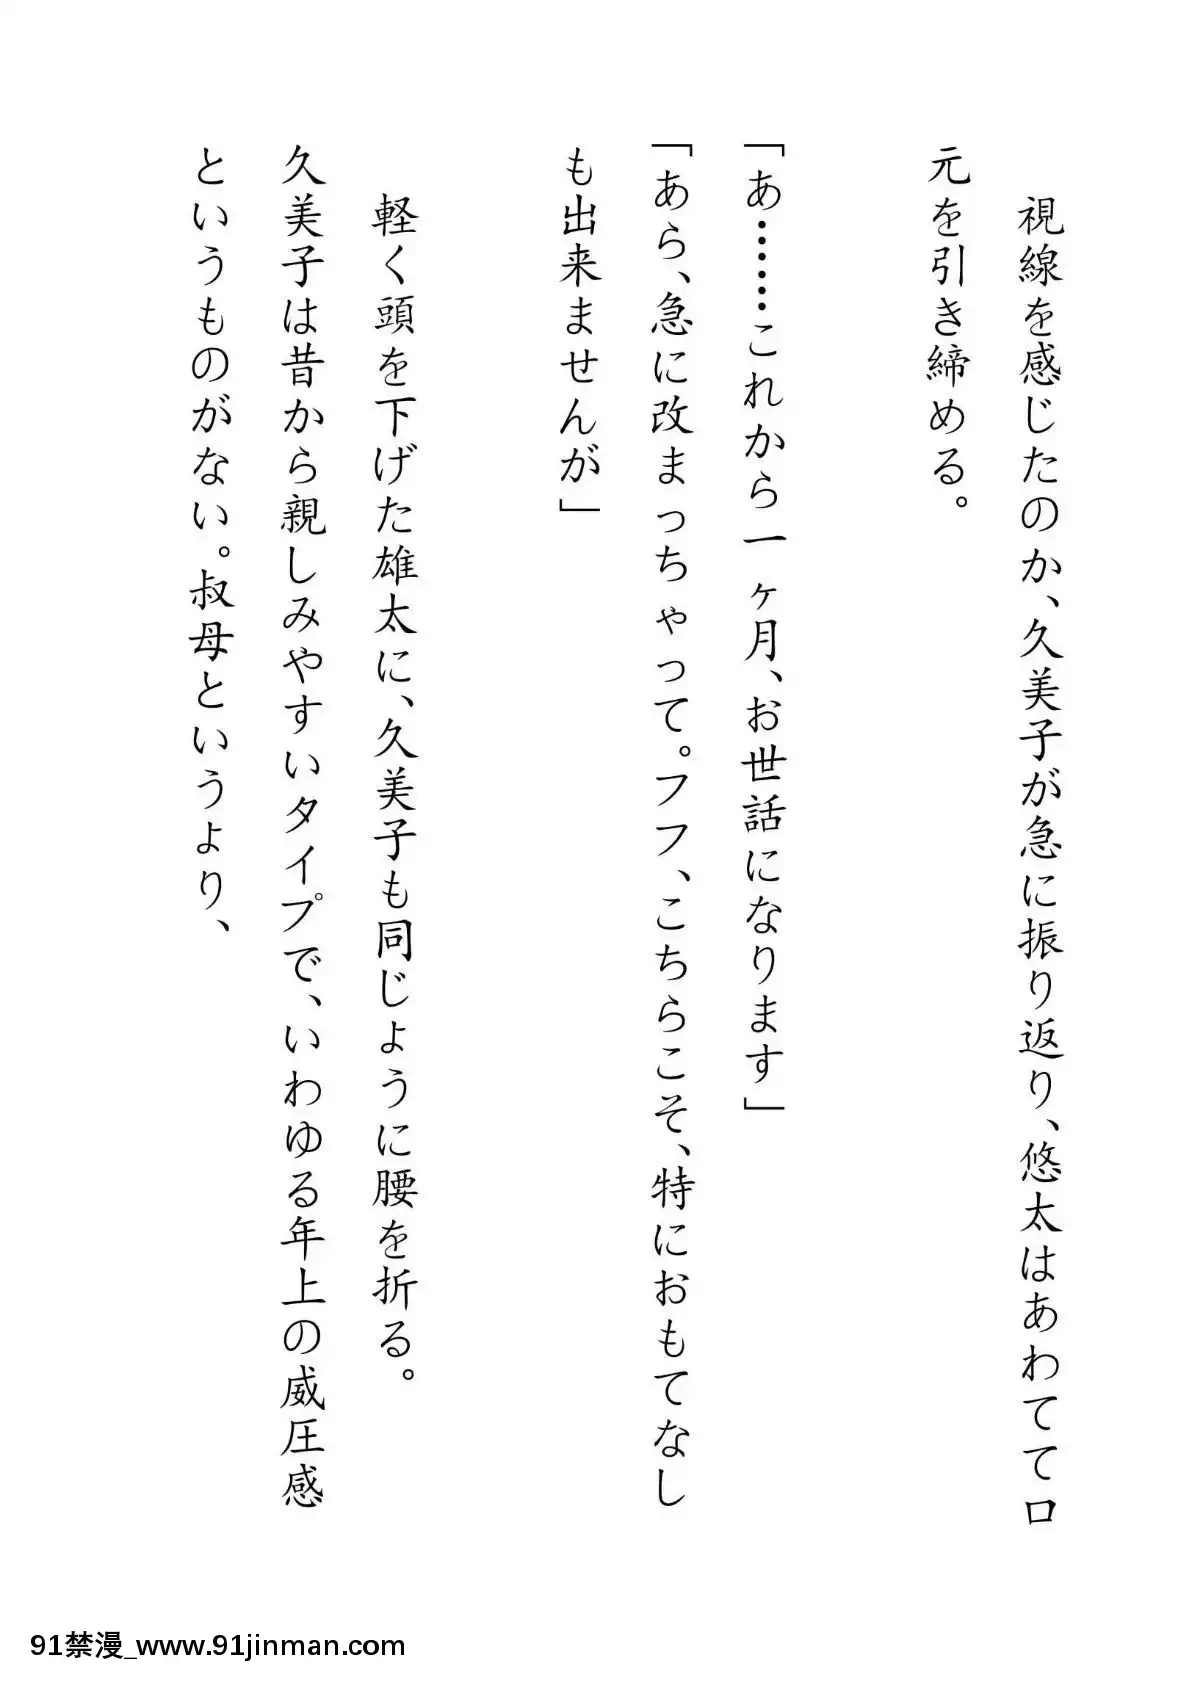 視線を感じたのか、久美子が急に振り返り、悠太はあわてて口
元を引き締める。
「あ……これから一ヶ月、お世話になります」
「あら、急に改まっちゃって。フフ、こちらこそ、特におもてなし
も出来ませんが」
軽く頭を下げた雄太に、久美子も同じように腰を折る。
久美子は昔から親しみやすいタイプで、いわゆる年上の威圧感
というものがない。叔母というより、
91禁漫_www.91jinman.com